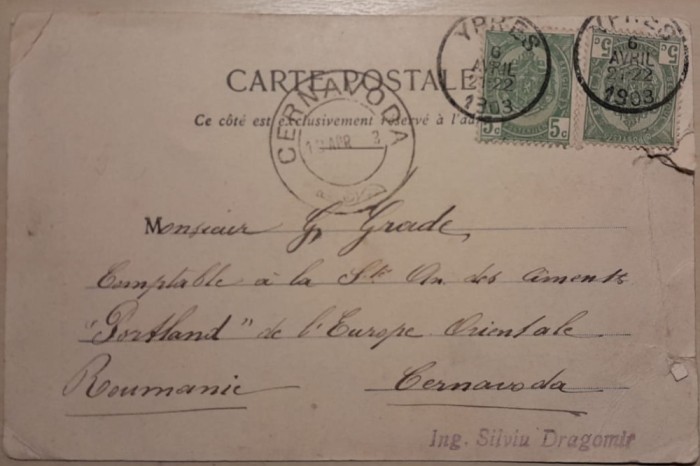 CARTE POSTALE
Ce côté est exclusivement réservé à l'adr
YPRES
6
AVRIL
21-22
1903
YPRES
6
AVRIL
21-22
1903
5c 5c
5c 5c
CERNAVODA
APR 3
Monsieur G, Grade,
Comptable à la Sté An. des ciments
"Portland" de l'Europe Orientale
Roumanie Cernavoda
Ing. Silviu Dragomir